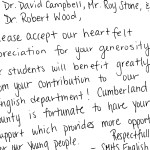 Dr. David Campbell, Mr. Roy Stone, &
Dr. Robert Wood,
lease accept our heartfelt
preciation for your generosity
r students will benefit greatly
om your contribution to our
nglish department! Cumberland
unty is fortunate to have your
upport which provides more opport
r our young people. Respectfull
- SMHS English